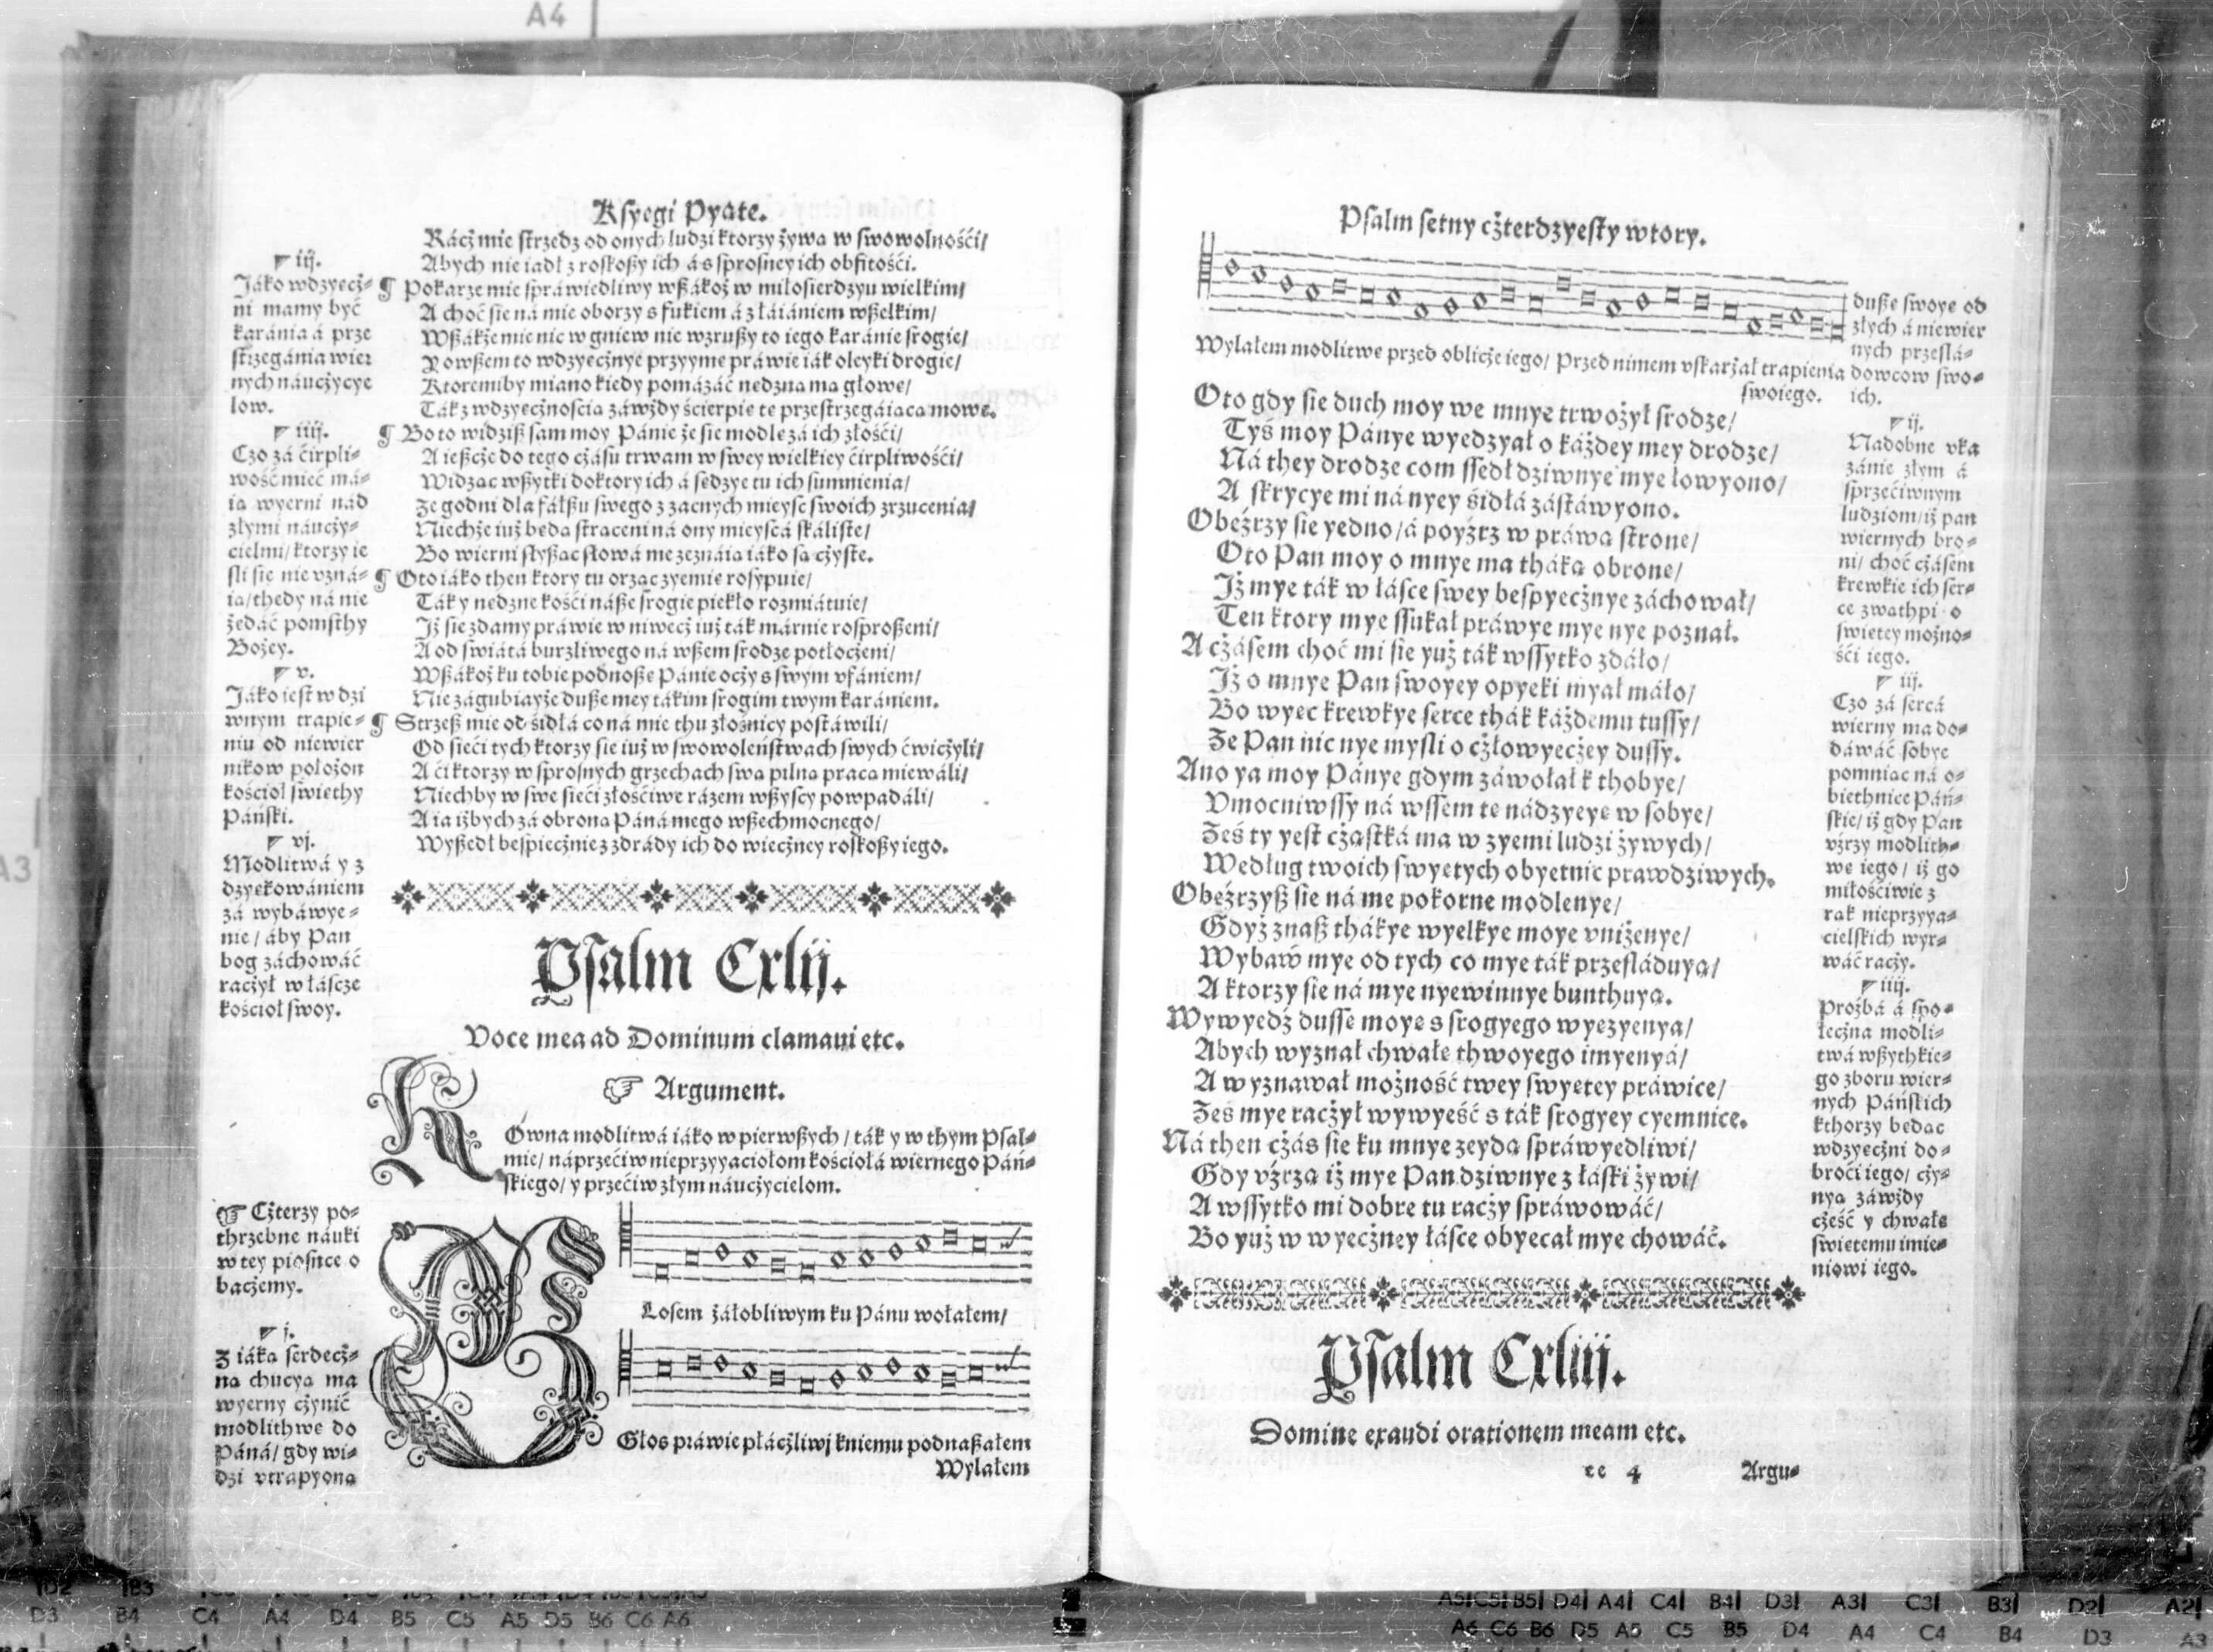 Ksyegi Pyąte.
Racż mie strzedz od onych ludzi ktorzy żywą w swowolnośći/
Abych nie iadł z roskoßy ich á s sprosney ich obfitośći.
¶ Pokarze mie spráwiedliwy wßákoż w miłosierdzyu wielkim/
A choć sie ná mie oborzy s fukiem á z łáiániem wßelkim/
Wßákże mie nic w gniew nie wzrußy to iego karánie srogie/
Y owßem to wdzyecżnye przyyme práwie iák oleyki drogie/
Ktoremiby miano kiedy pomázáć nędzną mą głowę/
Ták z wdzyecżnoscią záwżdy śćierpię tę przestrzegáiącą mowę.
¶ Bo to widziß sam moy Pánie że sie modlę zá ich złośći/
A ießcże do tego cżásu trwam w swey wielkiey ćirpliwośći/
Widząc wßytki doktory ich á sędzye tu ich sumnienia/
Że godni dla fałßu swego z zacnych mieysc swoich zrzucenia/
Niechże iuż będą straceni ná ony mieyscá skáliste/
Bo wierni słyßąc słowá me zeznáią iáko są cżyste.
¶ Oto iáko then ktory tu orząc zyemię rosypuie/
Ták y nędzne kośći náße srogie piekło rozmiátuie/
Iż sie zdamy práwie w niwecż iuż ták márnie rosproßeni/
A od świátá burzliwego ná wßem srodze potłocżeni/
Wßákoż ku tobie podnoßę Pánie ocży s swym vfániem/
Nie zágubiayże duße mey tákim srogim twym karániem.
¶ Strzeß mie od śidłá co ná mię thu złosnicy postáwili/
Od sieći tych ktorzy sie iuż w swowoleństwach swych ćwicżyli/
A ći ktorzy w sprosnych grzechach swą pilną pracą miewáli/
Niechby w swe sieći złośćiwe rázem wßyscy powpadáli/
A ia iżbych zá obroną Páná mego wßechmocnego/
Wyßedł bespiecżnie z zdrády ich do wiecżney roskoßy iego.
iij.
Jáko wdzyecż-
ni mamy być
karánia á prze
strzegánia wier
nych náucżycye
low.
iiij.
Czo zá ćirpli-
wość mieć má-
ią wyerni nád
złymi náucży-
cielmi/ ktorzy ie
sli się nie vzná-
ią/ thedy ná nie
żędáć pomsthy
Bożey.
v.
Jáko iest w dzi
wnym trapie-
niu od niewier
nikow położon
kośćioł święthy
Páński.
vj.
Modlitwá y z
dzyękowániem
zá wybáwye-
nie/ áby Pan
bog záchowáć
racżył w łásce
kośćioł swoy.
Psalm Cxlij.
Voce mea ad Dominum clamaui etc.
☞ Argument.
Rowna modlitwá iáko w pierwßych/ ták y w thym Psal-
mie/ náprzećiw nieprzyyaciołom kośćiołá wiernego Páń-
skiego/ y przećiw złym náucżycielom.
☞ Cżterzy po-
thrzebne náuki
w tey piosnce o
bacżemy.
j.
Z iáką serdecż-
ną chucyą ma
wyerny cżynić
modlithwę do
Páná/ gdy wi-
dzi vtrapyoną
GLosem żáłobliwym ku Pánu wołałem/
Głos práwie płácżliwj kniemu podnaßałem
Wylałem
Psalm setny cżterdzyesty wtory.
Wylałem modlitwę przed oblicże iego/ Przed nimem vskarżał trapienia
swoiego.
dußę swoyę od
złych á niewier
nych przeslá-
dowcow swo-
ich.
Oto gdy sie duch moy we mnye trwożył srodze/
Tyś moy Pánye wyedzyał o káżdey mey drodze/
Ná they drodze com ssedł dziwnye mye łowyono/
A skrycye mi ná nyey śidłá zástáwyono.
Obeźrzy sie yedno/ á poyźrz w práwą stronę/
Oto Pan moy o mnye ma tháką obronę/
Iż mye ták w łásce swey bespyecżnye záchował/
Ten ktory mye ssukał práwye mye nye poznał.
A cżásem choć mi sie yuż ták wssytko zdáło/
Iż o mnye Pan swoyey opyeki myał máło/
Bo wyec krewkye serce thák káżdemu tussy/
Że Pan nic nye mysli o cżłowyecżey dussy.
Ano ya moy Pánye gdym záwołał k thobye/
Vmocniwssy ná wssem tę nádzyeye w sobye/
Żeś ty yest cżąstká ma w zyemi ludzi żywych/
Według twoich swyętych obyetnic prawdziwych.
Obeźrzyß sie ná me pokorne modlenye/
Gdyż znaß thákye wyelkye moye vniżenye/
Wybaẃ mye od tych co mye ták przesláduyą/
A ktorzy sie ná mye nyewinnye bunthuyą.
Wywyedź dusse moye s srogyego wyęzyenya/
Abych wyznał chwałę thwoyego imyenyá/
A wyznawał możność twey swyętey práwice/
Żeś mye racżył wywyeść s ták srogyey cyemnice.
Ná then cżás sie ku mnye zeydą spráwyedliwi/
Gdy vźrzą iż mye Pan dziwnye z łáski żywi/
A wssytko mi dobre tu racży spráwowáć/
Bo yuż w wyecżney łásce obyecał mye chowáć.
ij.
Nadobne vka
zánie złym á
sprzećiwnym
ludziom/ iż pan
wiernych bro-
ni/ choć cżásem
krewkie ich ser-
ce zwathpi o
swiętey możno-
śći iego.
iij.
Czo zá sercá
wierny ma do-
dáwáć sobye
pomniąc ná o-
biethnice Páń-
skie/ iż gdy Pan
vźrzy modlith-
wę iego/ iż go
miłośćiwie z
rąk nieprzyya-
cielskich wyr-
wáć racży.
iiij.
Proźbá á spo-
łecżna modli-
twá wßythkie-
go zboru wier-
nych Páńskich
kthorzy będąc
wdzyecżni do-
broći iego/ cży-
nyą záwżdy
cżeść y chwałę
swiętemu imie-
niowi iego.
Psalm Cxliij.
Domine exaudi orationem meam etc.
te 4
Argu-